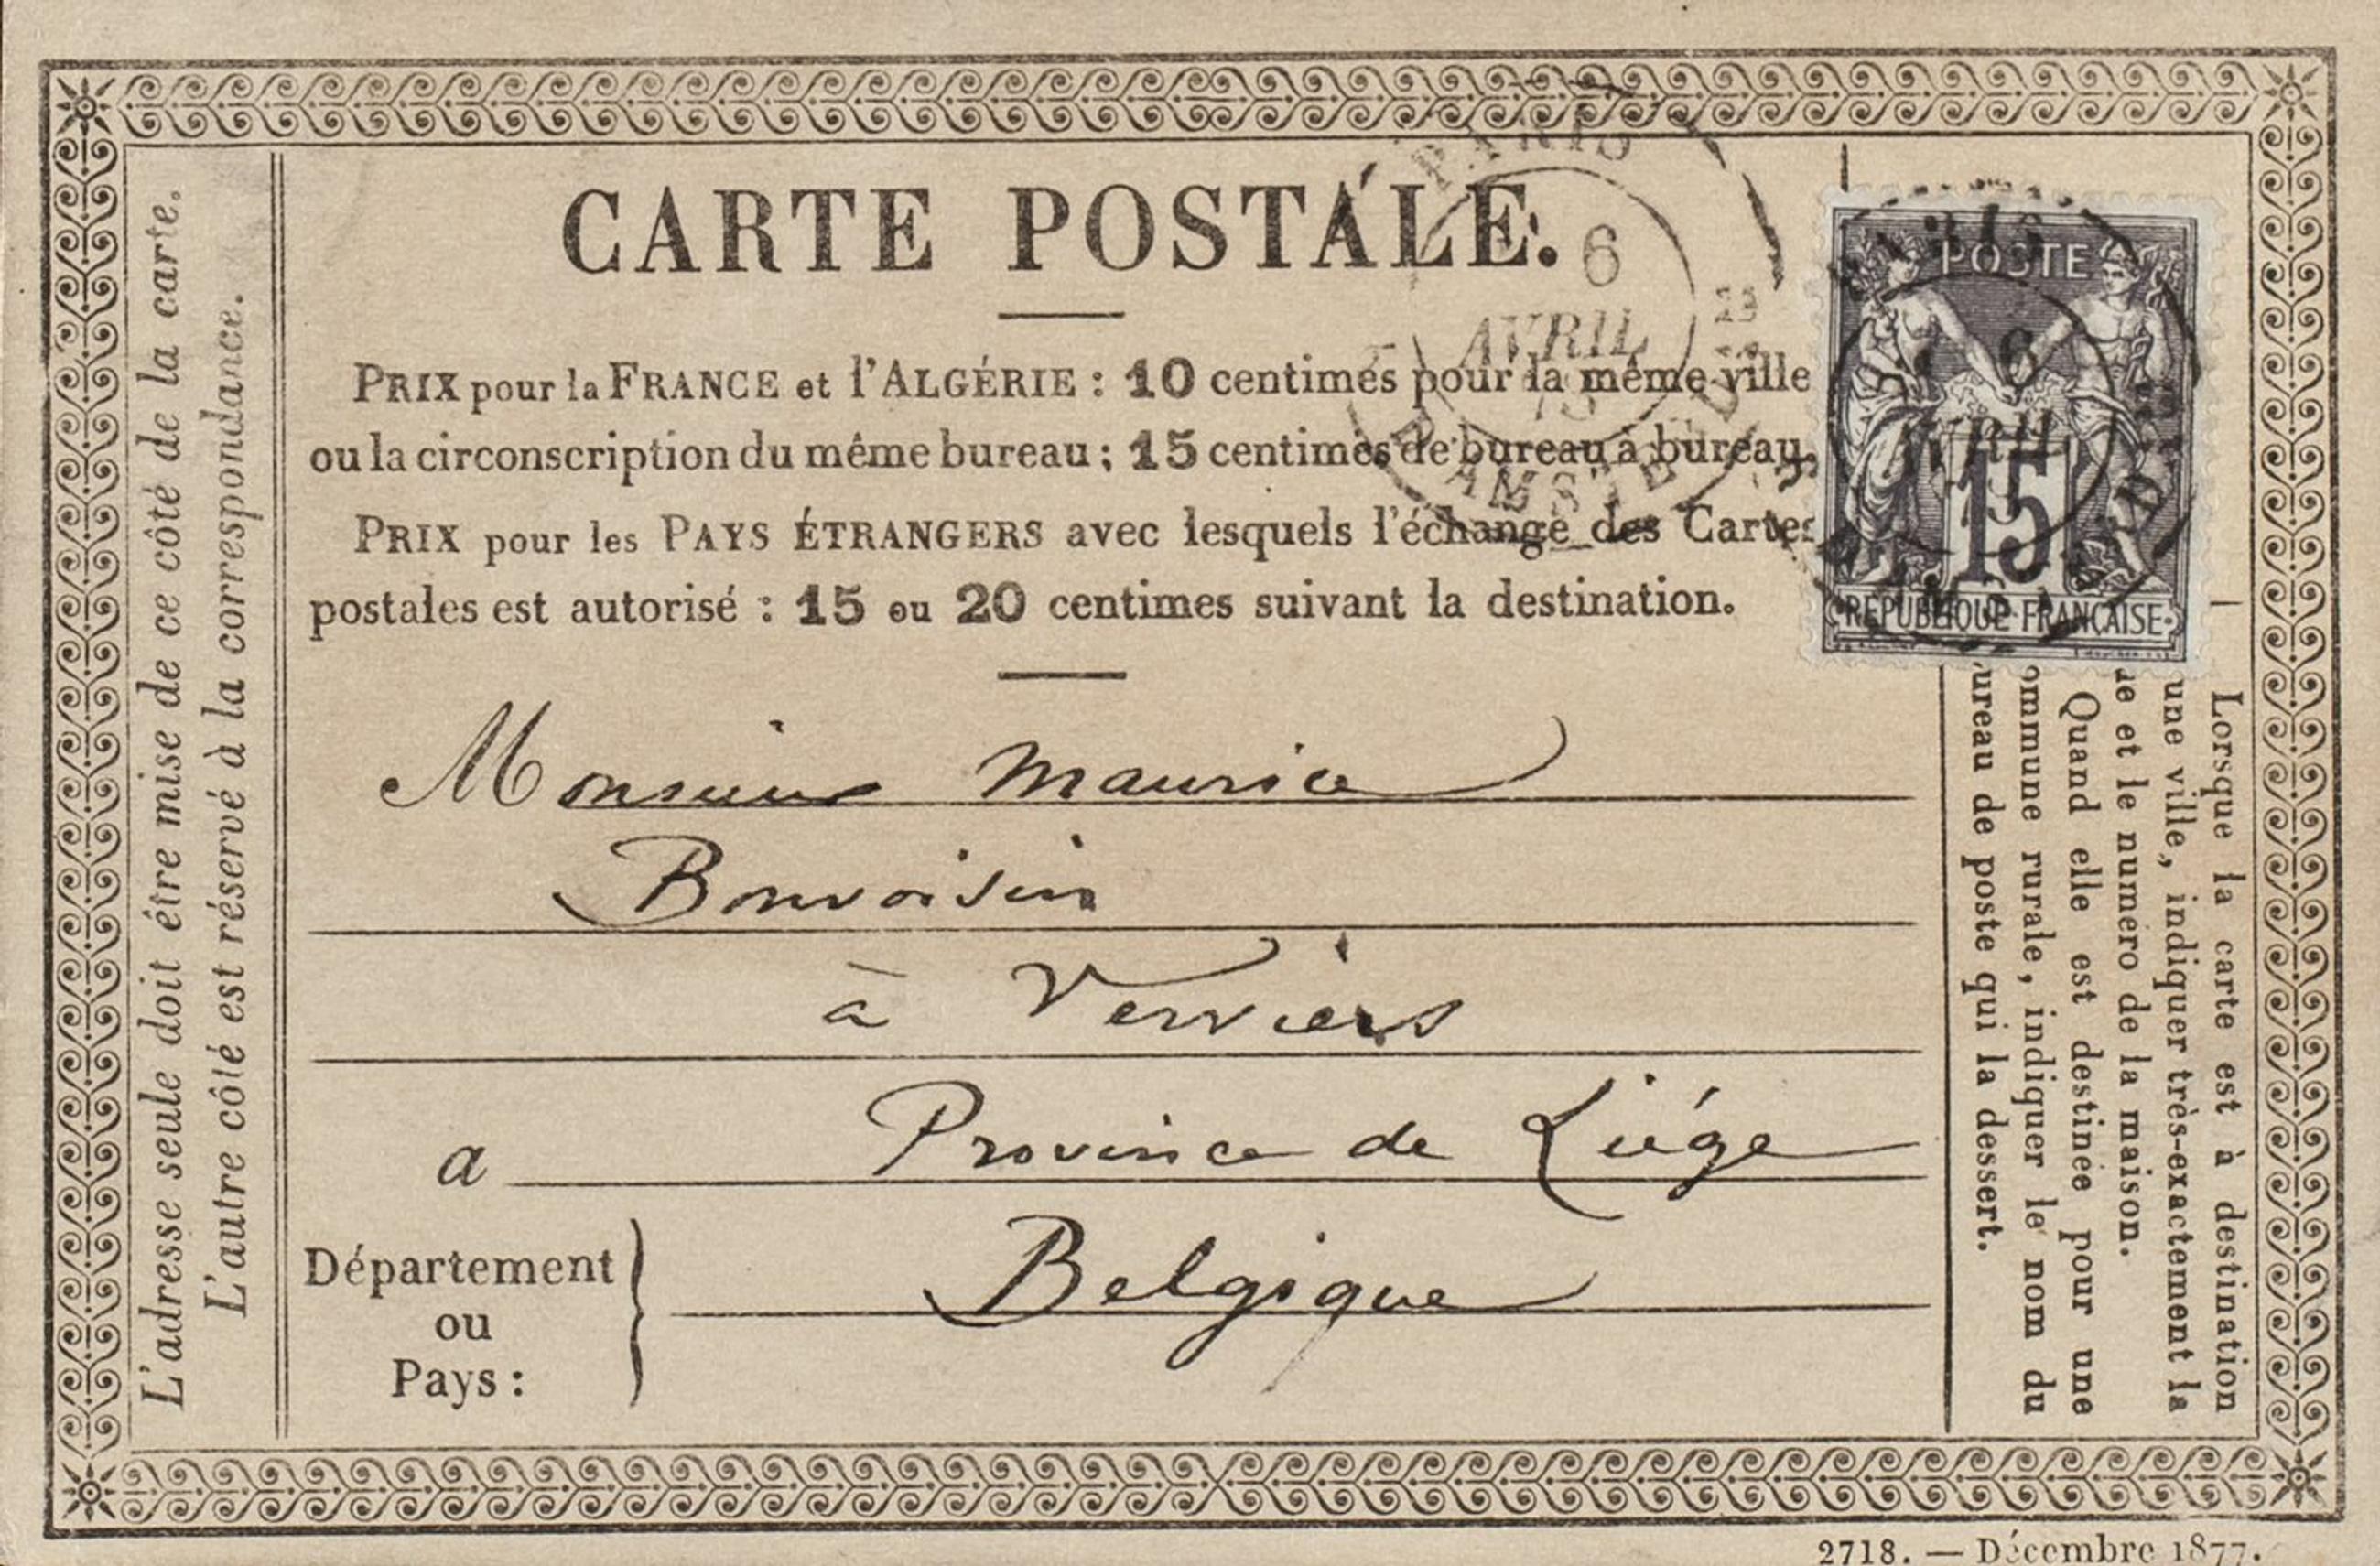 L'adresse seule doit être mise de ce côté de la carte.
L'autre côté est réservé à la correspondance.
CARTE POSTALE.
PRIX pour la FRANCE et l'ALGÉRIE : 10 centimes pour la même ville
ou la circonscription du même bureau ; 15 centimes de bureau à bureau.
PRIX pour les PAYS ÉTRANGERS avec lesquels l'échange des Cartes
postales est autorisé : 15 ou 20 centimes suivant la destination.
PARIS
6
AVRIL
POSTE
15
REPUBLIQUE FRANÇAISE
Monsieur Maurice
Bonvoisin
à Verviers
a Province de Liége
Département
ou
Pays :
Belgique
Lorsque la carte est à destination
une ville, indiquer très-exactement la
et le numéro de la maison.
Quand elle est destinée pour une
ommune rurale, indiquer le nom du
ureau de poste qui la dessert.
2718. — Décembre 1877.